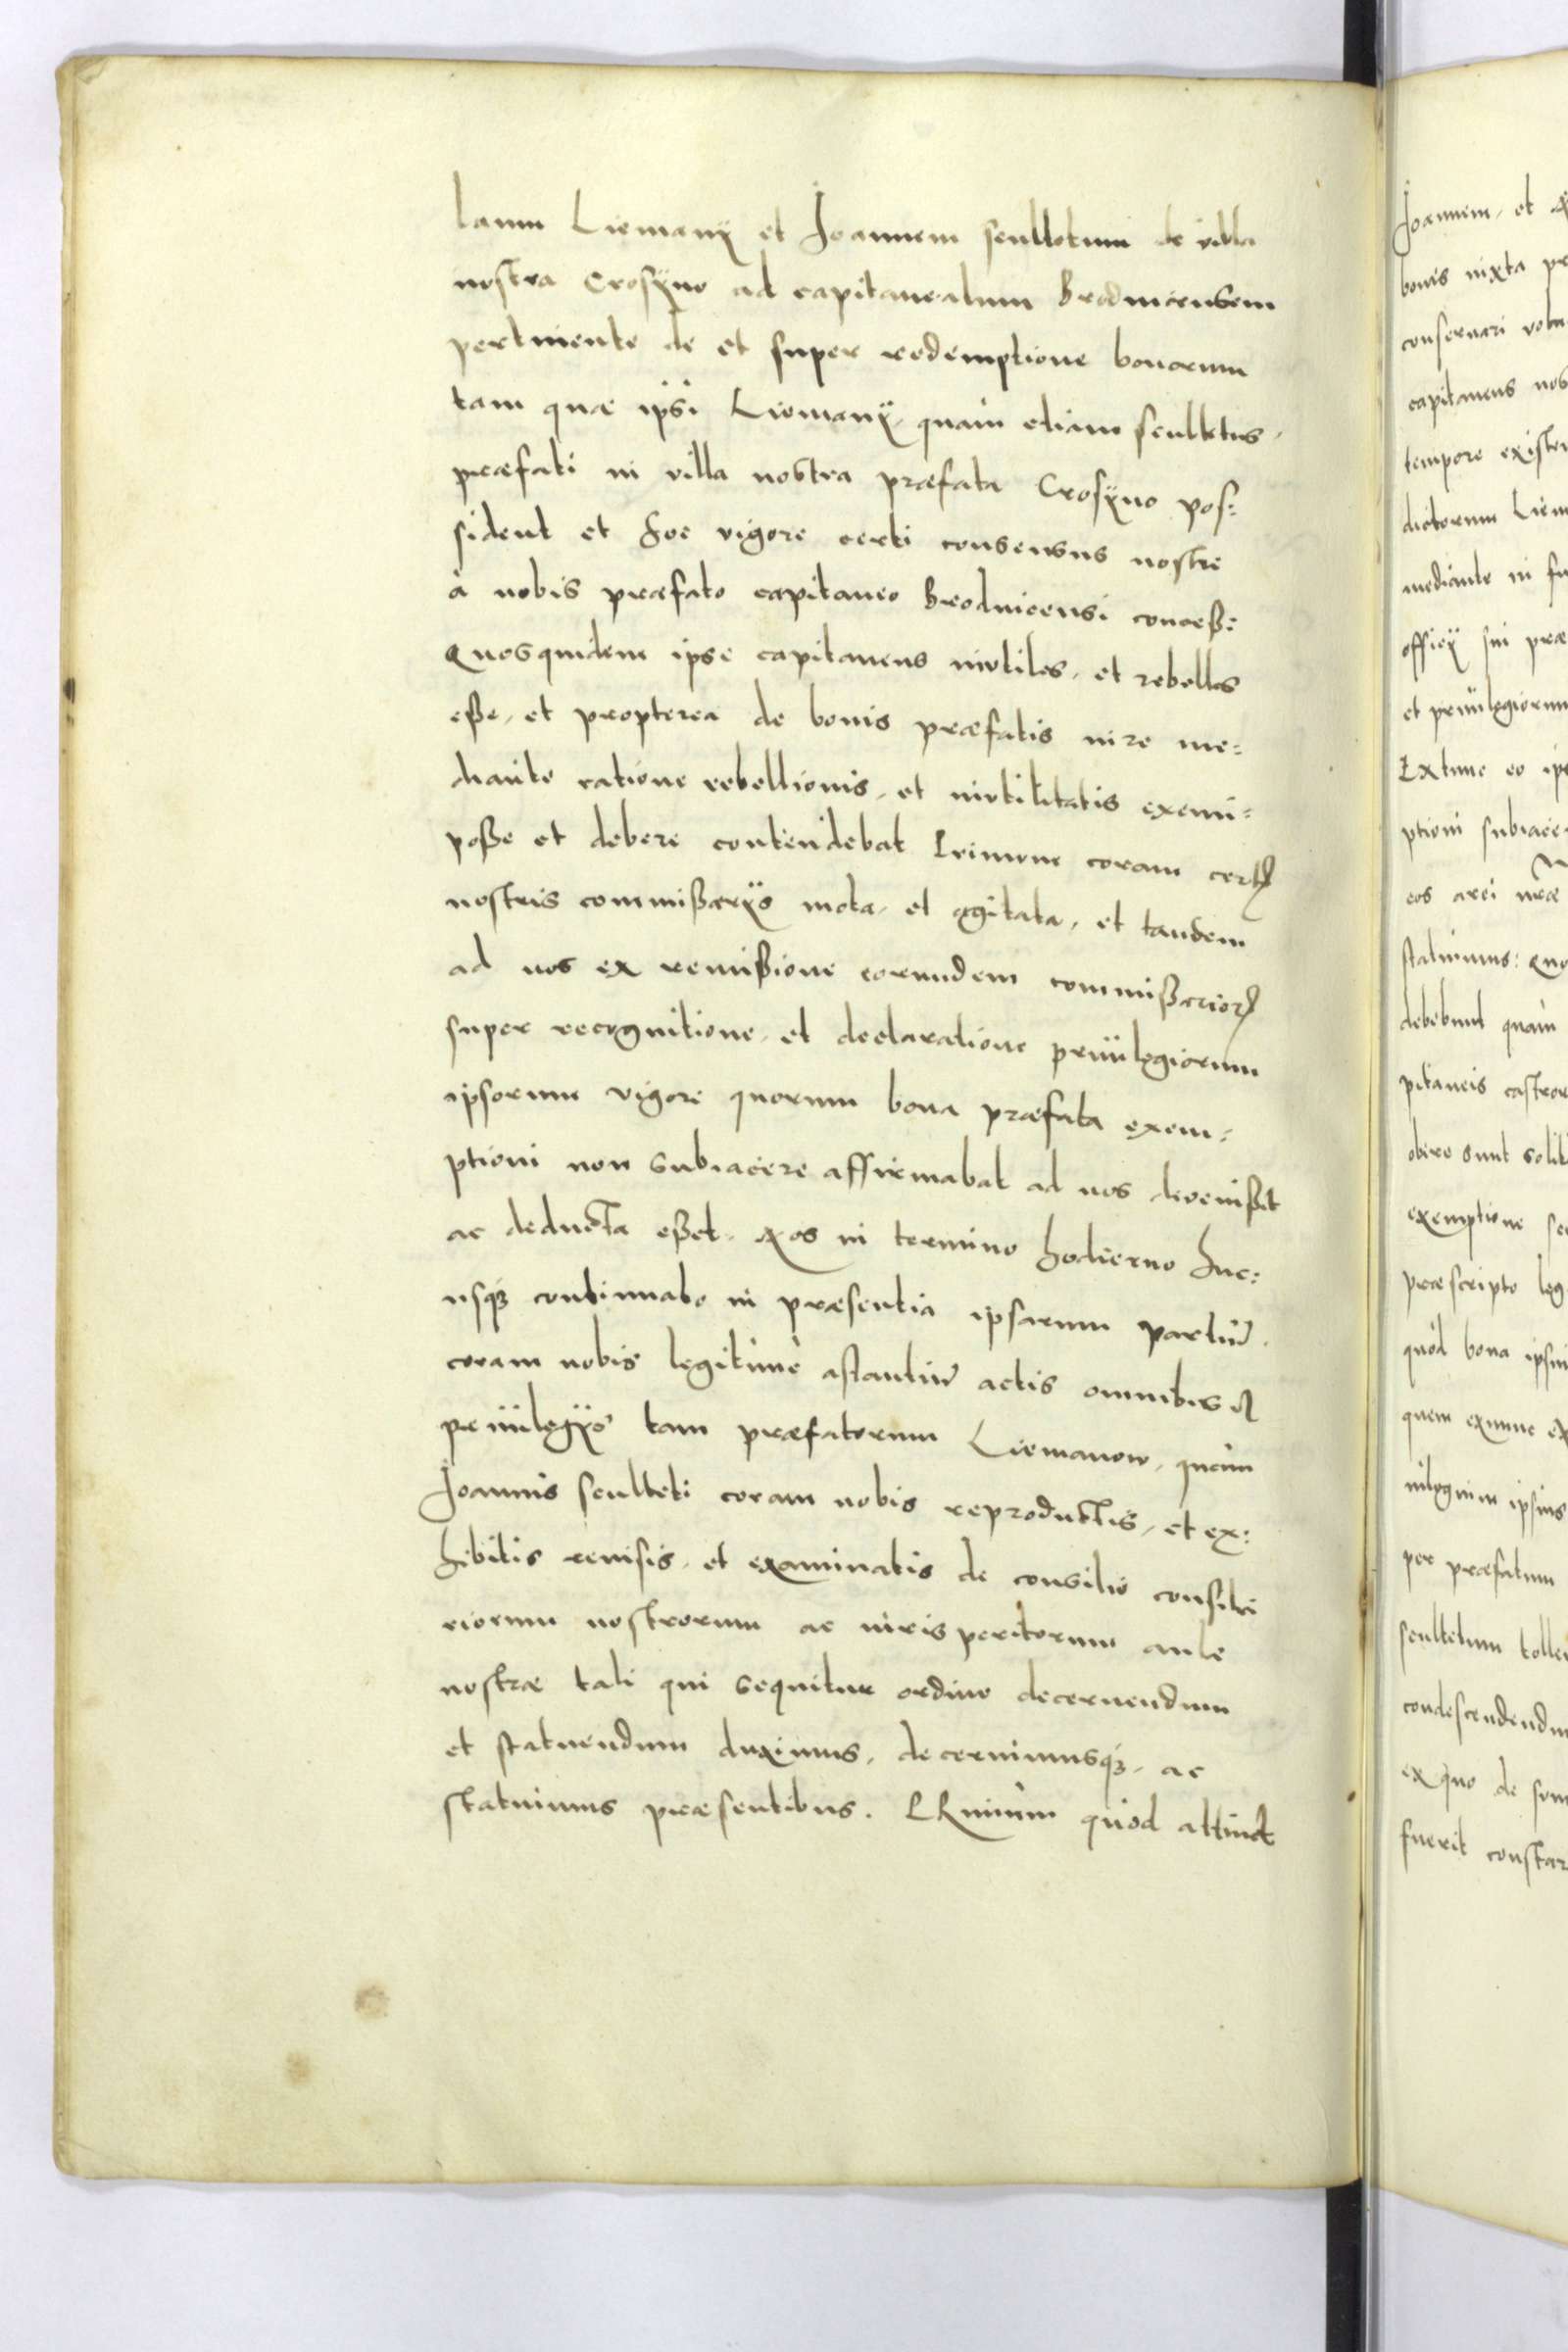 lanm Liemanÿ et Joannem scultetum de villa
nostra Crosÿno ad capitaneatum Brodnicensem
pertinente de et super redemptione bonorum
tam quæ ipsi Liemanÿ, quàm etiam scultetus,
præfati in villa nostra præfata Crosÿno pos=
sident et hoc vigore certi consensus nostri
à nobis præfato capitaneo Brodnicensi conceß:
Quosquidem ipse capitaneus inutiles, et rebelles
eße, et propterea de bonis præfatis iure me=
diante ratione rebellionis, et inutilitatis eximi=
poße et debere contendebat Primum coram certꝭ
nostris commißarÿs mota, et agitata, et tandem
ad nos ex remißione eorundem commißarioꝝ
super recognitione, et declaratione priuilegiorum
ipsorum vigore quorum bona præfata exem=
ptioni non subiacere affirmabat ad nos deuenißet
ac deducta eßet. Nos in termino hodierno huc=
usqꝫ continuato in præsentia ipsarum partiū.
coram nobis legitimè astantiū actis omnibus et
priuilegÿs tam præfatorum Liemanow, quàm
Joannis sculteti coram nobis reproductis, et ex=
hibitis reuisis, et examinatis de consilio consilia
riorum nostrorum ac iuris peritorum aulę
nostræ tali qui sequitur ordine decernendum
et statuendum duximus, decernimusqꝫ, ac
statuimus præsentibus. PRimùm quòd attinet
Joannem, et
bonis iuxta
conseruari
capitaneus
tempore
dictorum
mediante in
officÿ sui
et priuilegiorum
Extunc eo
ptioni
eos arci nræ
statuimus:
debebunt quàm
pitaneis
obire sunt
exemptione
præscripto
quòd bona
quem exnunc
uilegium ipsius
per præfatum
scultetum
condescendendum
ex quo de
fuerit